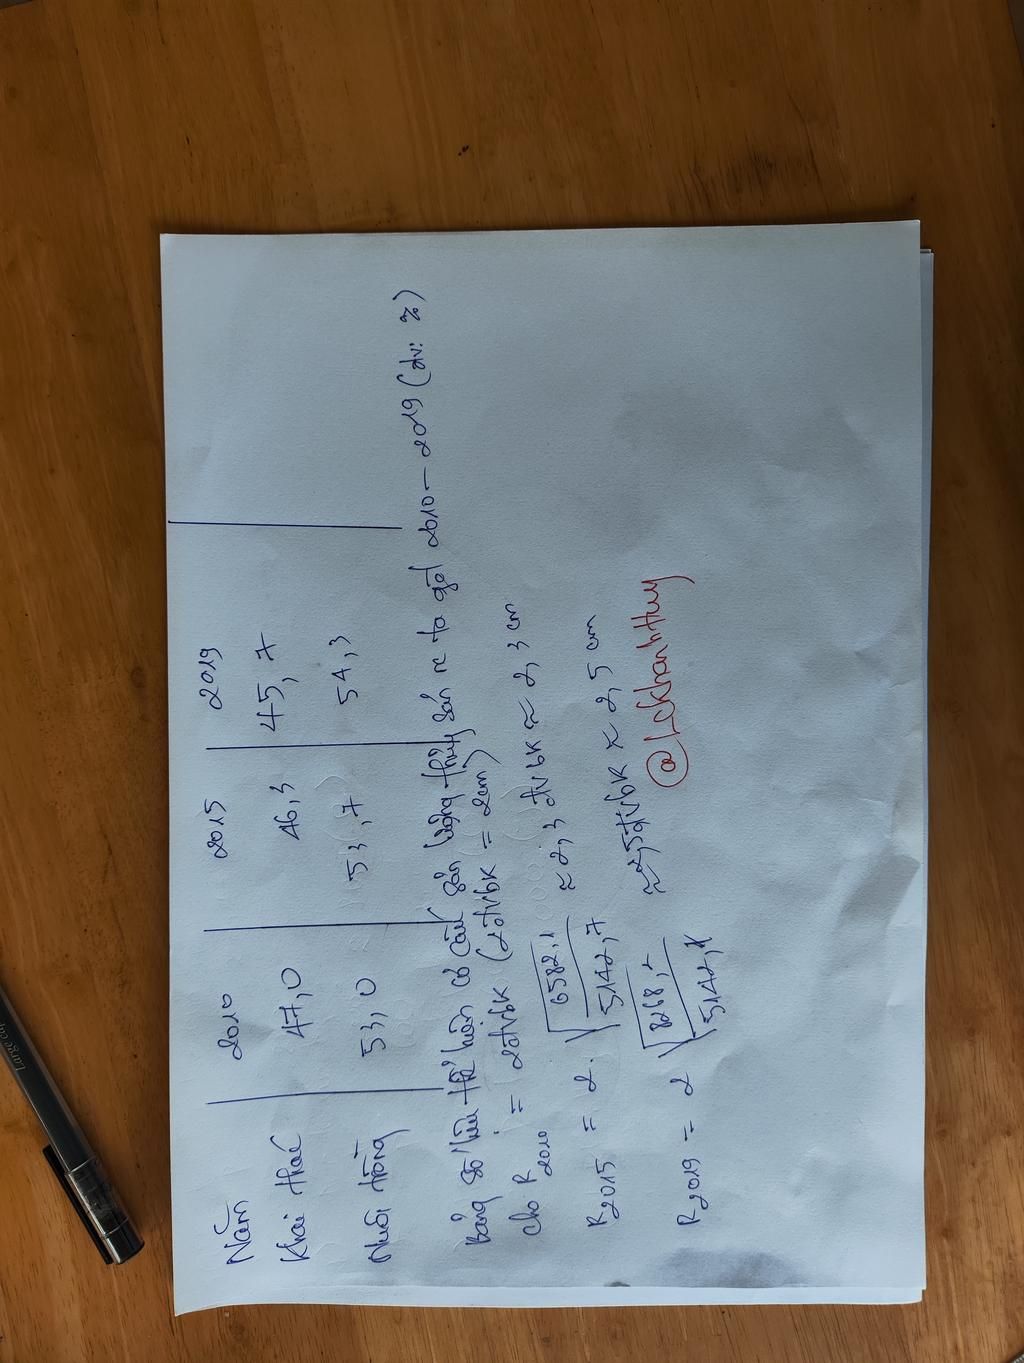 Năm 2010 2015 2019
Khai thác 47,0 46,3 45,7
Nuôi trồng 53,0 53,7 54,3
Bảng số liệu thể hiện cơ cấu sản lượng thủy sản nc ta gđ 2010 - 2019 (đv: %)
cho R2010 = 2đvbk (2đvbk = 2cm)
R2015 = 2. √6582,1/5142,7 ≈ 2,3 đvbk ≈ 2,3 cm
R2019 = 2 √8268,2/5142,7 ≈ 2,5đvbk ≈ 2,5 cm
@LeKhanhHuy
Large cap